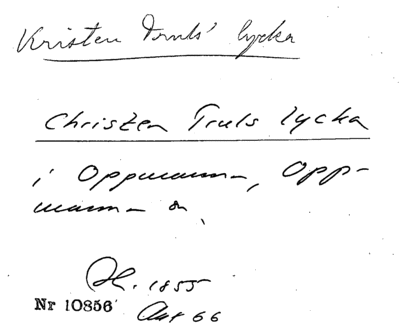 Kristen Truls' lycka
Christen Truls lycka
i Oppmanna, Opp-
manna
1855
Nr 10856
66